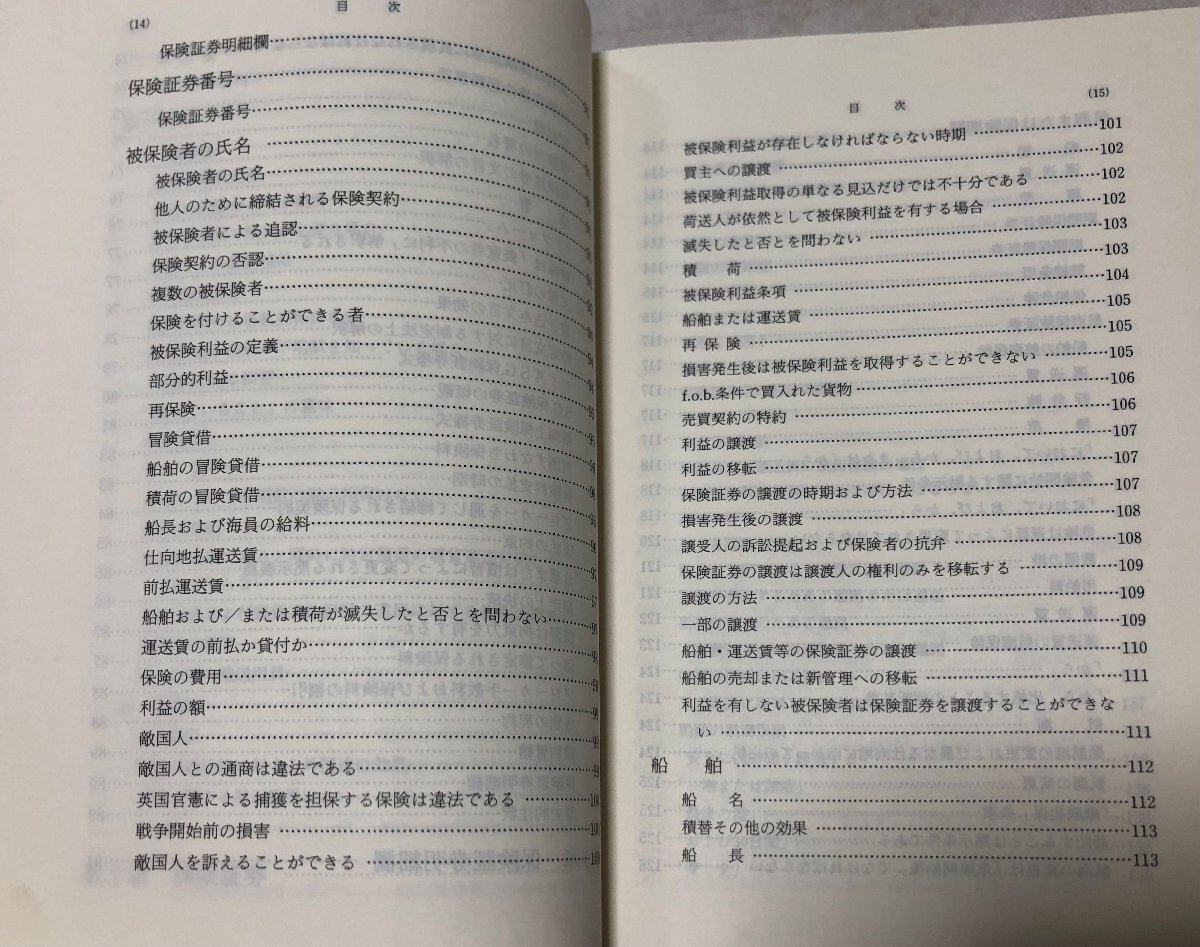 (14)
目 次
保険証券明細欄
保険証券番号
保険証券番号
被保険者の氏名
被保険者の氏名
他人のために締結される保険契約
被保険者による追認
保険契約の否認
複数の被保険者
保険を付けることができる者
被保険利益の定義
部分的利益
再保険
冒険貸借
船舶の冒険貸借
積荷の冒険貸借
船長および海員の給料
仕向地払運送賃
前払運送賃
船舶および/または積荷が滅失したと否とを問わない
運送賃の前払か貸付か
保険の費用
利益の額
敵国人
敵国人との通商は違法である
英国官憲による捕獲を担保する保険は違法である
戦争開始前の損害
敵国人を訴えることができる
(15)
目 次
被保険利益が存在しなければならない時期 101
買主への譲渡 102
被保険利益取得の単なる見込だけでは不十分である 102
荷送人が依然として被保険利益を有する場合 102
滅失したと否とを問わない 103
積 荷 103
被保険利益条項 104
船舶または運送賃 105
再 保 険 105
損害発生後は被保険利益を取得することができない 105
f.o.b.条件で買入れた貨物 106
売買契約の特約 106
利益の譲渡 107
利益の移転 107
保険証券の譲渡の時期および方法 107
損害発生後の譲渡 108
譲受人の訴訟提起および保険者の抗弁 108
保険証券の譲渡は譲渡人の権利のみを移転する 109
譲渡の方法 109
一部の譲渡 109
船舶・運送賃等の保険証券の譲渡 110
船舶の売却または新管理への移転 111
利益を有しない被保険者は保険証券を譲渡することができな
い 111
船 舶 112
船 名 112
積替その他の効果 113
船 長 113